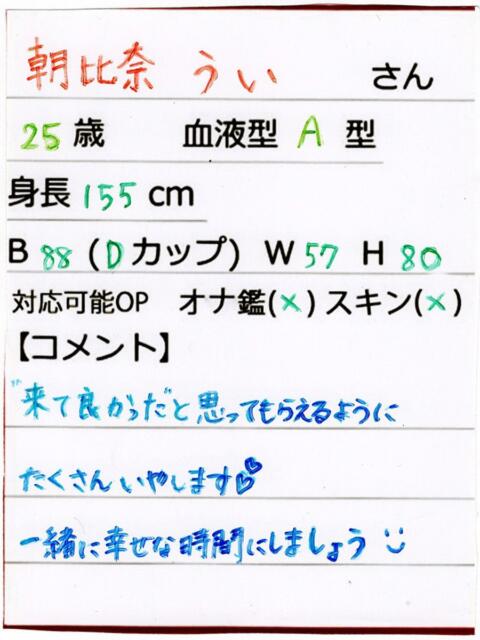 朝比奈 うい さん
25歳 血液型 A 型
身長 155 cm
B 88 (Dカップ) W 57 H 80
対応可能OP オナ鑑(×) スキン(×)
【コメント】
"来て良かった"と思ってもらえるように
たくさんいやします💕
一緒に幸せな時間にしましょう ‥)